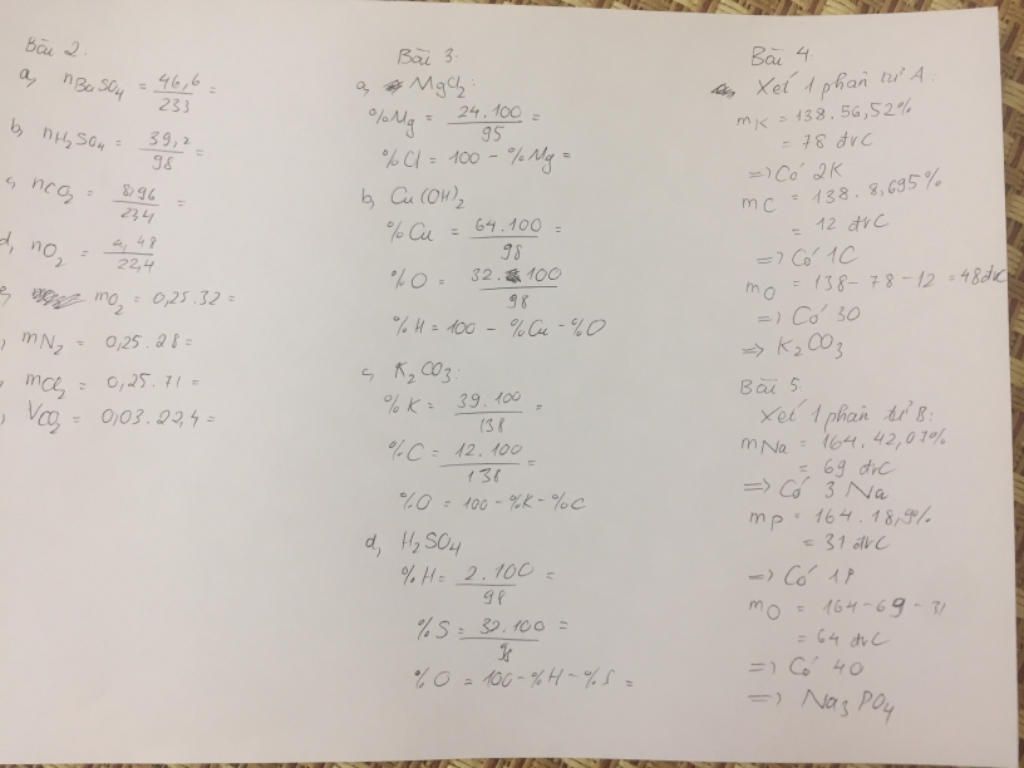 Bài 2:
a, nBaSO4 = 46,6 / 233 =
b, nH2SO4 = 39,2 / 98 =
c, nCO2 = 8,96 / 234 =
d, nO2 = 4,48 / 22,4
e, mO2 = 0,25.32 =
, mN2 = 0,25.28 =
, mCl2 = 0,25.71 =
, VCO2 = 0,03.22,4 =
Bài 3:
a, MgCl2:
%Mg = 24.100 / 95 =
%Cl = 100 - %Mg =
b, Cu(OH)2
%Cu = 64.100 / 98 =
%O = 32.100 / 98
%H = 100 - %Cu - %O
c, K2CO3:
%K = 39.100 / 138 =
%C = 12.100 / 138 =
%O = 100 - %K - %C
d, H2SO4
%H = 2.100 / 98 =
%S = 32.100 / 98 =
%O = 100 - %H - %S =
Bài 4
Xét 1 phân tử A:
mK = 138.56,52%
= 78 đvC
=> Có 2K
mC = 138.8,695%
= 12 đvC
=> Có 1C
mO = 138 - 78 - 12 = 48đvC
=> Có 3O
=> K2CO3
Bài 5.
Xét 1 phân tử B:
mNa = 164.42,07%
= 69 đvC
=> Có 3 Na
mP = 164.18,9%
= 31 đvC
=> Có 1P
mO = 164 - 69 - 31
= 64 đvC
=> Có 4O
=> Na3PO4